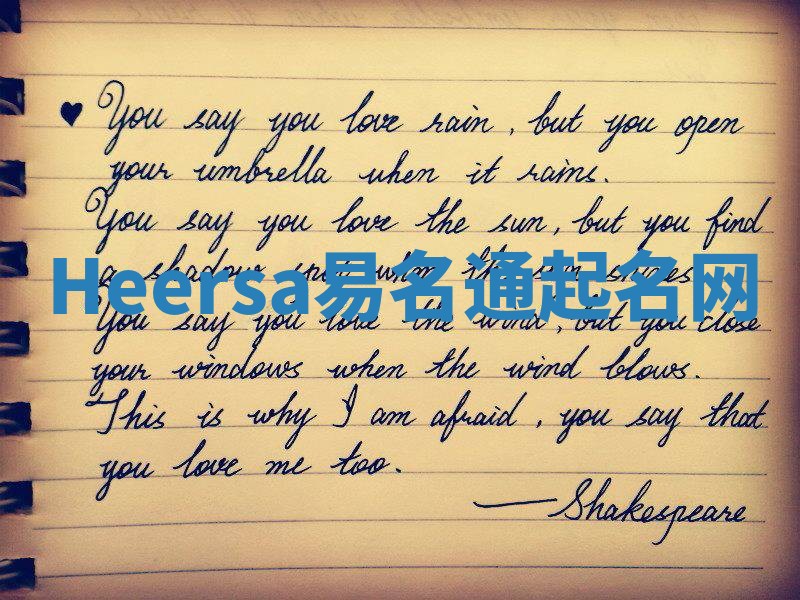 ♥ You say you love rain, but you open
your umbrella when it rains.
You say you love the sun, but you find
a shadow spot when the sun shines.
Heersa易名通起名网
You say you love the wind, but you close
your windows when the wind blows.
This is why I am afraid, you say that
you love me too.
— Shakespeare